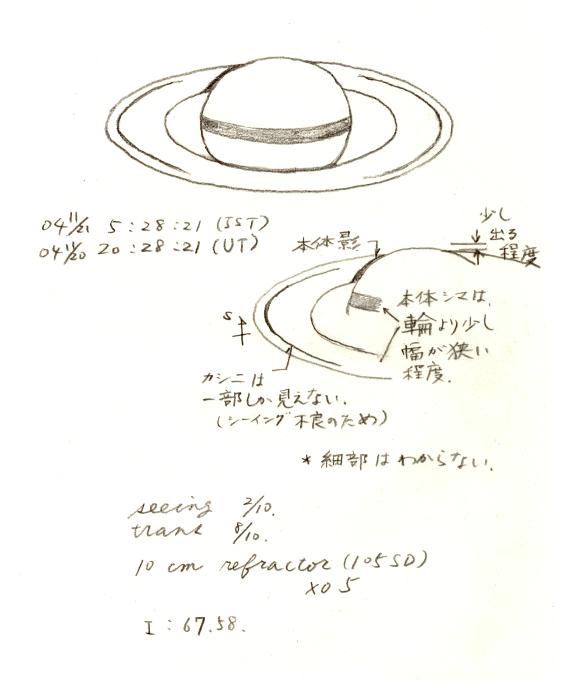 04 11/21 5:28:21 (JST)
04 11/20 20:28:21 (UT)
少し
出る
程度
本体影
本体シマは、
輪より少し
幅が狭い
程度.
S
カシニは
一部しか見えない.
(シーイング不良のため)
* 細部はわからない.
seeing 2/10.
trans 8/10.
10 cm refractor (105SD)
I : 67.58.